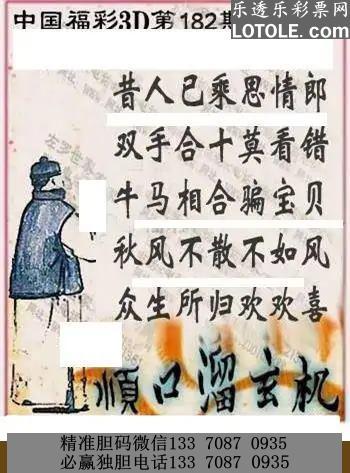 中国福彩3D第182期
乐透乐彩票网
LOTOLE.COM
昔人已乘思情郎
双手合十莫看错
牛马相合骗宝贝
秋风不散不如风
众生所归欢欢喜
顺口溜玄机
精准胆码微信133 7087 0935
必赢独胆电话133 7087 0935